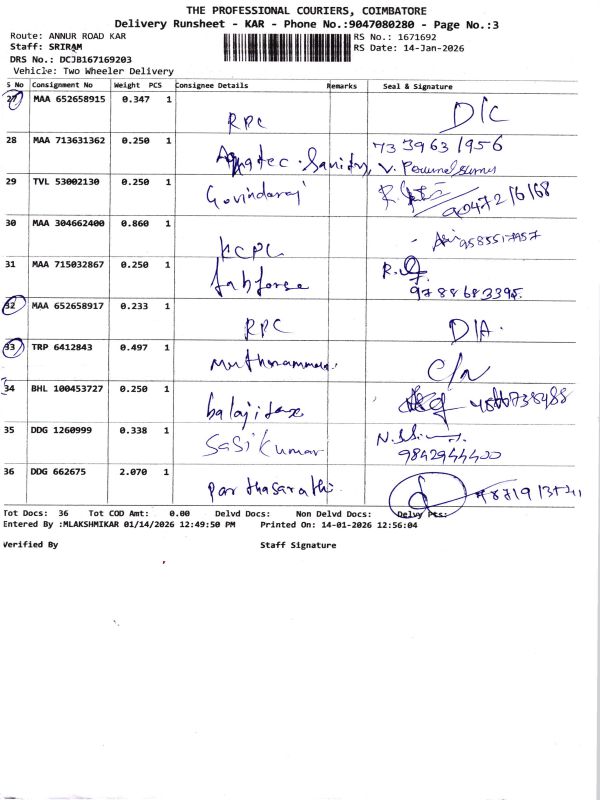 THE PROFESSIONAL COURIERS, COIMBATORE
Delivery Runsheet - KAR - Phone No.:9047080280 - Page No.:3
Route: ANNUR ROAD KAR RS No.: 1671692
Staff: SRIRAM RS Date: 14-Jan-2026
DRS No.: DCJB167169203
Vehicle: Two Wheeler Delivery
S No Consignment No Weight PCS Consignee Details Remarks Seal & Signature
27 MAA 652658915 0.347 1 RPC D/C
28 MAA 713631362 0.250 1 Sanitry, 7339631956
29 TVL 53002130 0.250 1 Govindaraj
30 MAA 304662400 0.860 1 KCPC 9585517957
31 MAA 715032867 0.250 1 fabforse 9788683395
32 MAA 652658917 0.233 1 RPC D/A.
33 TRP 6412843 0.497 1 C/N
34 BHL 100453727 0.250 1 balajitex
35 DDG 1260999 0.338 1 Sasikumar 9842944400
36 DDG 662675 2.070 1 Parthasarathi
Tot Docs: 36 Tot COD Amt: 0.00 Delvd Docs: Non Delvd Docs: Delvy Pts:
Entered By :MLAKSHMIKAR 01/14/2026 12:49:50 PM Printed On: 14-01-2026 12:56:04
Verified By Staff Signature